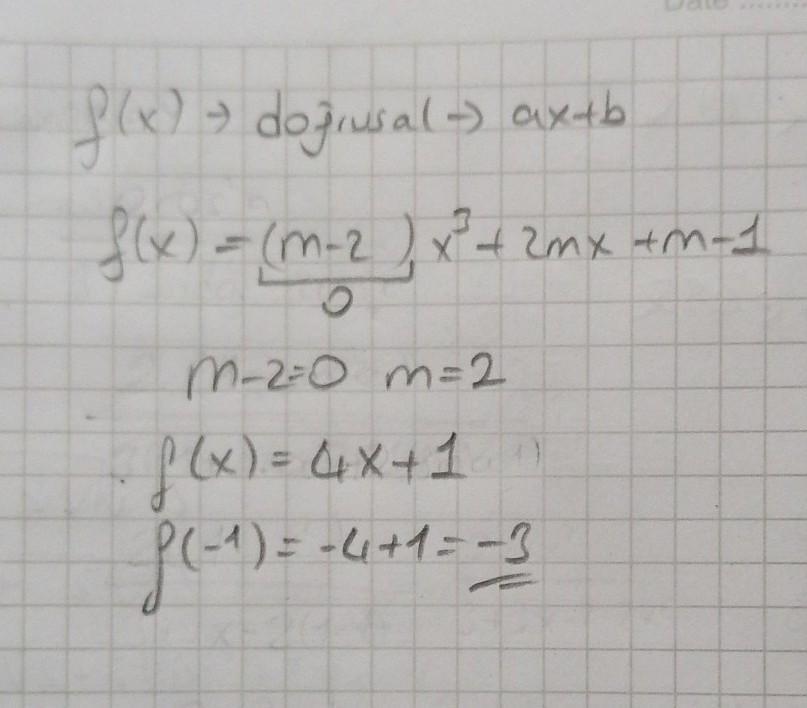 Date ........
f(x) → doğrusal → ax+b
f(x) = (m-2) x³ + 2mx + m-1
0
m-2=0 m=2
f(x) = 4x+1
f(-1) = -4+1 = -3